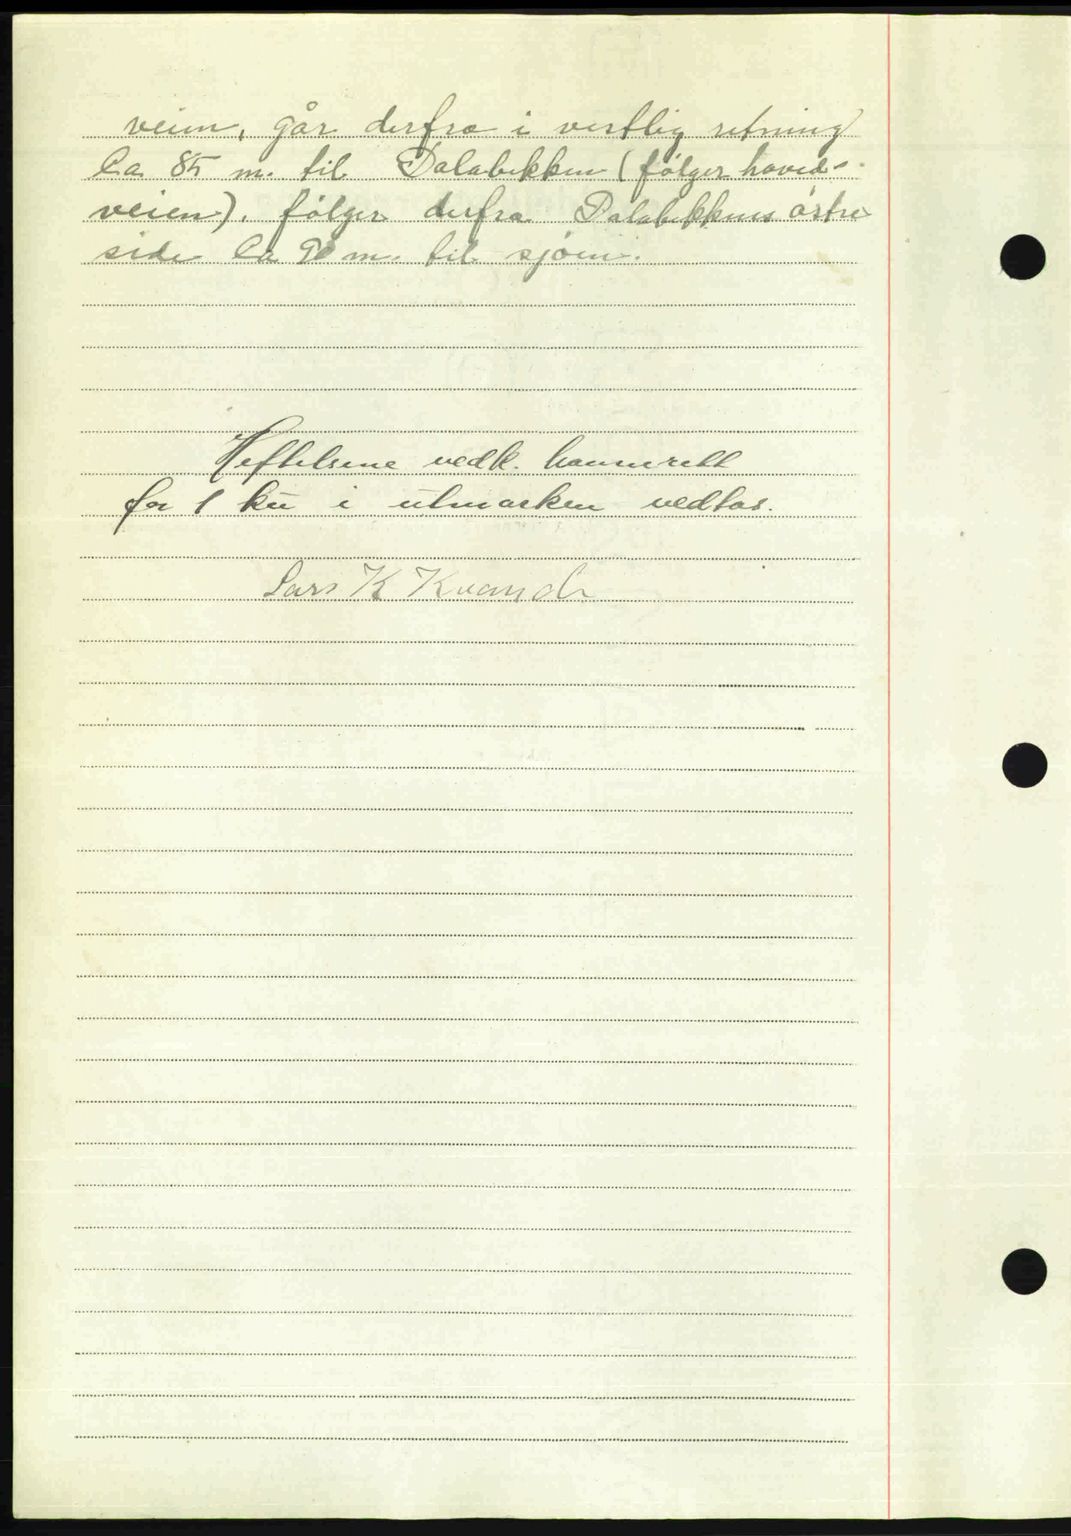 veien, går derfra i vestlig retning
Ca 85 m. til Dalabekken (følger hoved-
veien), følger derfra Dalabekkens östre
side Ca 90 m. til sjöen.
Heftelsene vedk. havnerett
for 1 ku i utmarken vedtas.
Lars K Kvande